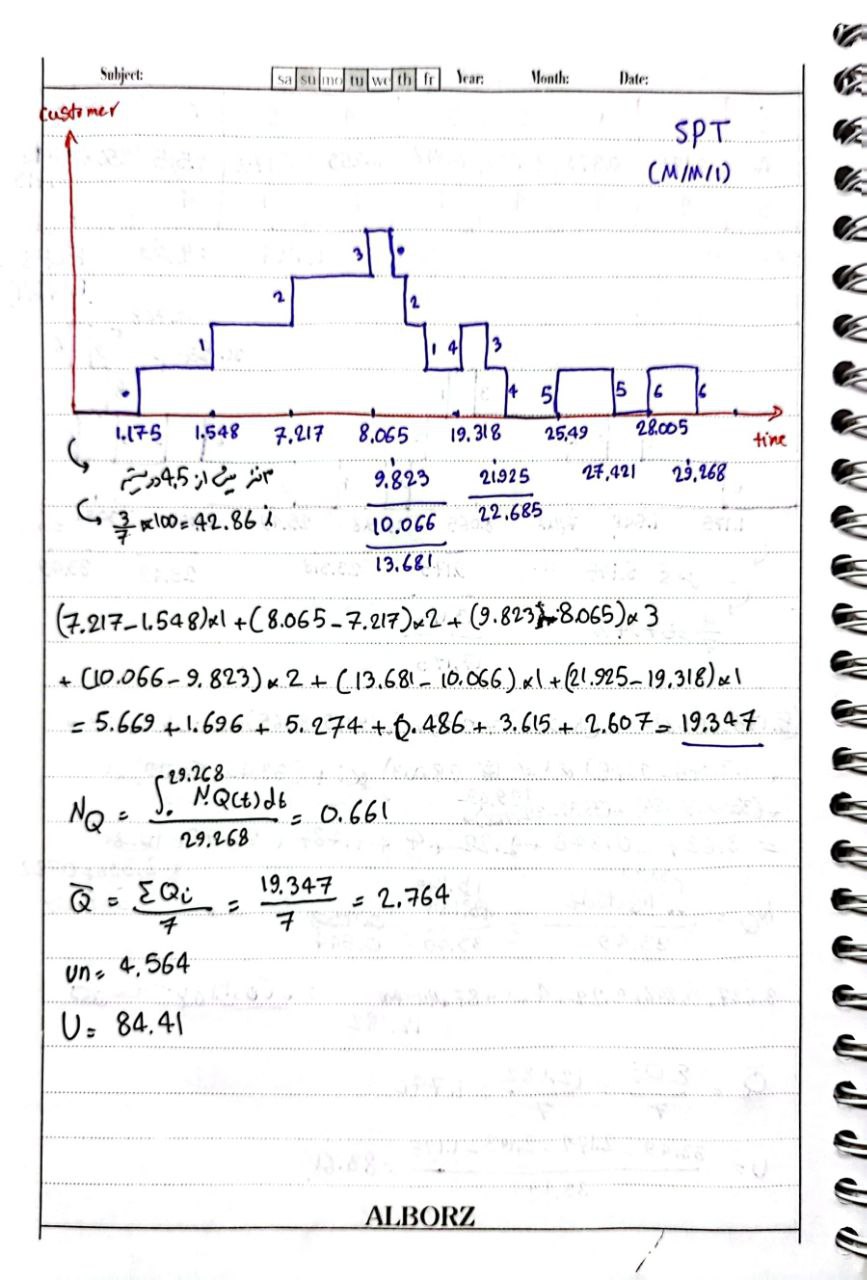 Subject: sa su mo tu we th fr Year: Month: Date:
customer
SPT
(M/M/1)
3
2 2
1 1 4 3
4 5 5 6 6
1.175 1.548 7.217 8.065 19.318 25.49 28.005 time
۳ نفر بیش از 4.5 9.823 21.925 27.421 29.268
3/7 × 100 = 42.86 10.066 22.685
13.681
(7.217-1.548)×1 + (8.065-7.217)×2 + (9.823-8.065)×3
+ (10.066-9.823)×2 + (13.681-10.066)×1 + (21.925-19.318)×1
= 5.669 + 1.696 + 5.274 + 0.486 + 3.615 + 2.607 = 19.347
NQ = ∫₀^29.268 NQ(t)dt / 29.268 = 0.661
Q̄ = ΣQi / 7 = 19.347 / 7 = 2.764
un = 4.564
U = 84.41
ALBORZ